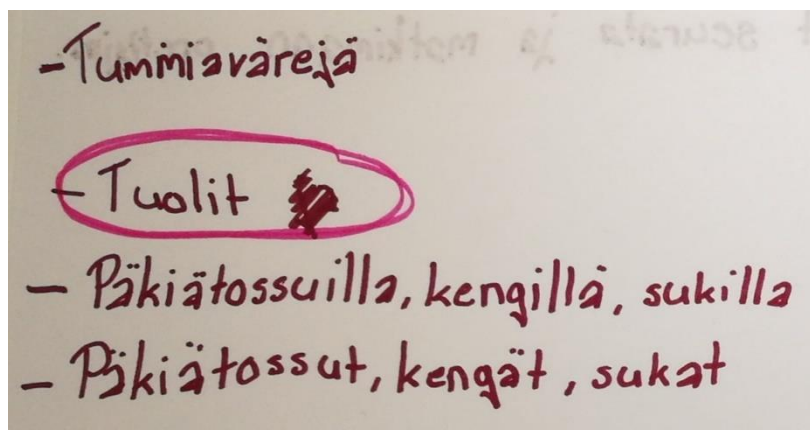 - Tummia värejä
- Tuolit
- Päkiätossuilla, kengillä, sukilla
- Päkiätossut, kengät, sukat